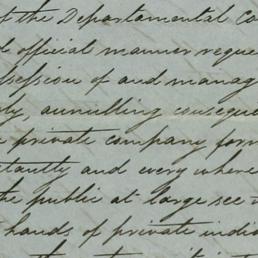 of the Departamental Co
official manner reque
session of and manag
annulling consequ
private company form
and every where
the public at large see
hands of private indi